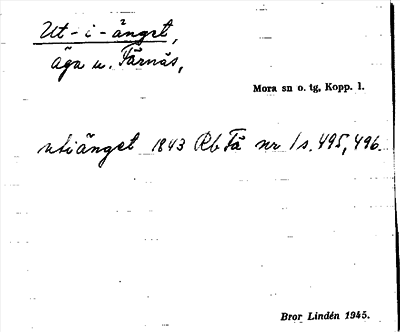 Ut-i-ängst,
äga u. Färnäs,
Mora sn o. tg, Kopp. l.
utiänget 1843 Rb Fä nr 1 s. 495, 496.
Bror Lindén 1945.